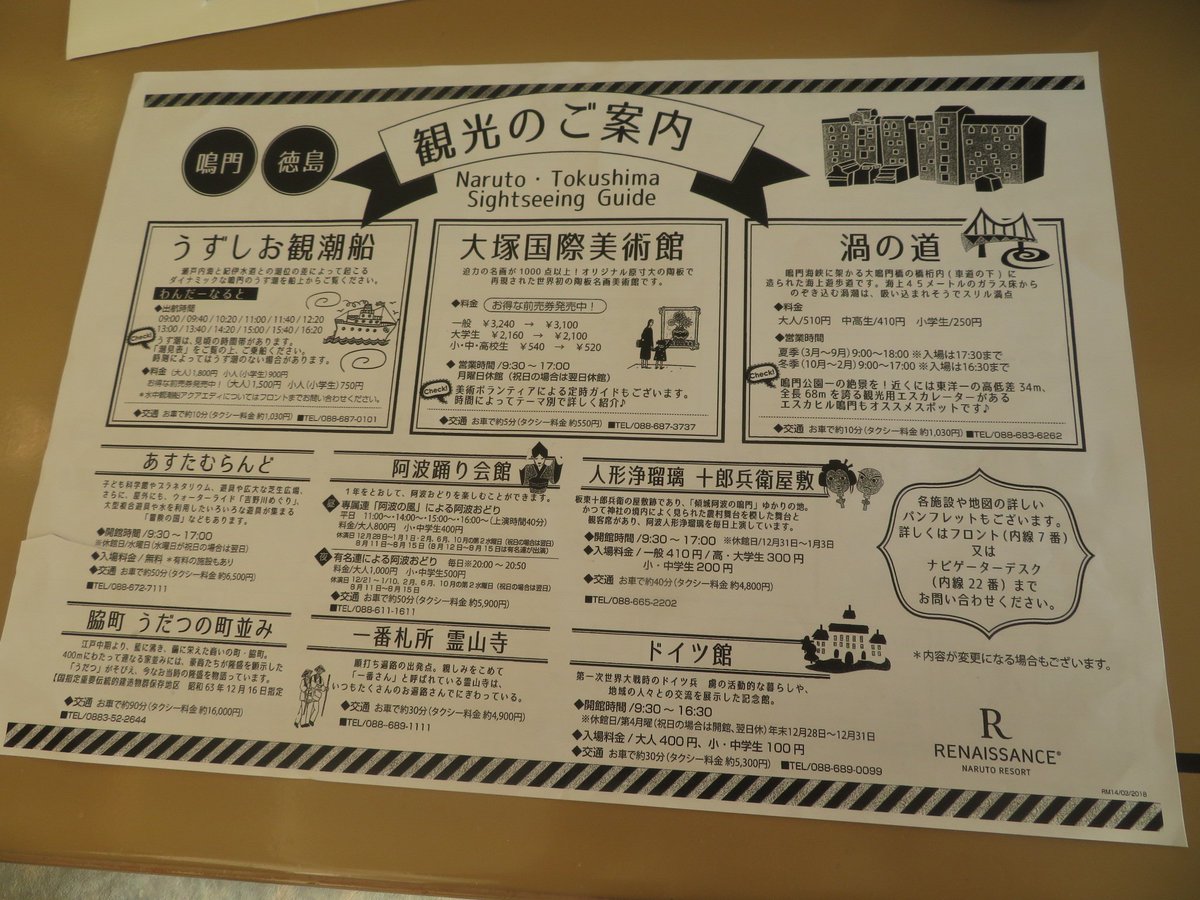 鳴門
徳島
観光のご案内
Naruto・Tokushima
Sightseeing Guide
うずしお観潮船
瀬戸内海と紀伊水道との潮位の差によって起こる
ダイナミックな鳴門のうず潮を船上からご覧ください。
わんだーなると
◆出航時間
09:00 / 09:40 / 10:20 / 11:00 / 11:40 / 12:20
13:00 / 13:40 / 14:20 / 15:00 / 15:40 / 16:20
Check!
うず潮は、見頃の時間帯があります。
「潮見表」をご覧の上、ご乗船ください。
時刻によってはうず潮のない場合があります。
◆料金 (大人)1,800円 小人(小学生)900円
お得な前売券発売中！(大人)1,500円 小人(小学生)750円
*水中観潮船アクアエディについてはフロントまでお問い合わせください。
◆交通 お車で約10分(タクシー料金 約1,030円) ■TEL/088-687-0101
大塚国際美術館
迫力の名画が1000点以上！オリジナル原寸大の陶板で
再現された世界初の陶板名画美術館です。
◆料金 お得な前売券発売中！
一般 ￥3,240 → ￥3,100
大学生 ￥2,160 → ￥2,100
小・中・高校生 ￥540 → ￥520
◆営業時間/9:30～17:00
月曜日休館（祝日の場合は翌日休館）
Check!
美術ボランティアによる定時ガイドもございます。
時間によってテーマ別で詳しく紹介♪
◆交通 お車で約5分(タクシー料金 約550円) ■TEL/088-687-3737
渦の道
鳴門海峡に架かる大鳴門橋の橋桁内(車道の下)に
造られた海上遊歩道です。海上45メートルのガラス床から
のぞき込む渦潮は、吸い込まれそうでスリル満点
◆料金
大人/510円 中高生/410円 小学生/250円
◆営業時間
夏季(3月～9月) 9:00～18:00 ※入場は17:30まで
冬季(10月～2月) 9:00～17:00 ※入場は16:30まで
Check!
鳴門公園一の絶景を！近くには東洋一の高低差34m、
全長68mを誇る観光用エスカレーターがある
エスカヒル鳴門もオススメスポットです♪
◆交通 お車で約10分(タクシー料金 約1,030円) ■TEL/088-683-6262
あすたむらんど
子ども科学館やプラネタリウム、遊具や広大な芝生広場、
さらに、屋外にも、ウォーターライド「吉野川めぐり」、
太型複合遊具や水を利用したいろいろな遊具が集まる
「冒険の国」などもあります。
◆開館時間/9:30～17:00
※休館日/水曜日(水曜日が祝日の場合は翌日)
◆入場料金/無料 *有料の施設もあり
◆交通 お車で約50分(タクシー料金 約6,500円)
■TEL/088-672-7111
阿波踊り会館
1年をとおして、阿波おどりを楽しむことができます。
昼 専属連「阿波の風」による阿波おどり
平日 11:00～・14:00～・15:00～・16:00～(上演時間40分)
料金/大人800円 小・中学生400円
休演日 12月28日～1月1日・2月、6月、10月の第2水曜日(祝日の場合は翌日)
8月11日～8月15日(8月12日～8月15日は有名連が出演)
夜 有名連による阿波おどり 毎日※20:00～20:50
料金/大人1,000円 小・中学生500円
休演日 12/21～1/10、2月、6月、10月の第2水曜日(祝日の場合は翌日)
8月11日～8月15日
◆交通 お車で約50分(タクシー料金 約5,900円)
■TEL/088-611-1611
人形浄瑠璃 十郎兵衛屋敷
板東十郎兵衛の屋敷跡であり、「傾城阿波の鳴門」ゆかりの地。
かつて神社の境内によく見られた農村舞台を模した舞台と
観客席があり、阿波人形浄瑠璃を毎日上演しています。
◆開館時間/9:30～17:00 ※休館日/12月31日～1月3日
◆入場料金/一般410円/高・大学生300円
小・中学生200円
◆交通 お車で約40分(タクシー料金 約4,800円)
■TEL/088-665-2202
各施設や地図の詳しい
パンフレットもございます。
詳しくはフロント(内線7番)
又は
ナビゲーターデスク
(内線22番)まで
お問い合わせください。
脇町 うだつの町並み
江戸中期より、藍に湧き、繭に栄えた商いの町・脇町。
400mにわたって連なる家並みには、豪商たちが隆盛を鼓示した
「うだつ」がそびえ、今なお当時の隆盛を物語っています。
【国指定重要伝統的建造物群保存地区 昭和63年12月16日指定
◆交通 お車で約90分(タクシー料金 約16,000円)
■TEL/0883-52-2644
一番札所 霊山寺
願打ち遍路の出発点。親しみをこめて
「一番さん」と呼ばれている霊山寺は、
いつもたくさんのお遍路さんでにぎわっている。
◆交通 お車で約30分(タクシー料金 約4,900円)
■TEL/088-689-1111
ドイツ館
第一次世界大戦時のドイツ兵 虜の活動的な暮らしや、
地域の人々との交流を展示した記念館。
◆開館時間/9:30～16:30
※休館日/第4月曜(祝日の場合は開館、翌日休)年末12月28日～12月31日
◆入場料金/大人400円、小・中学生100円
◆交通 お車で約30分(タクシー料金 約5,300円) ■TEL/088-689-0099
＊内容が変更になる場合もございます。
R
RENAISSANCE®
NARUTO RESORT
RM14/03/2018